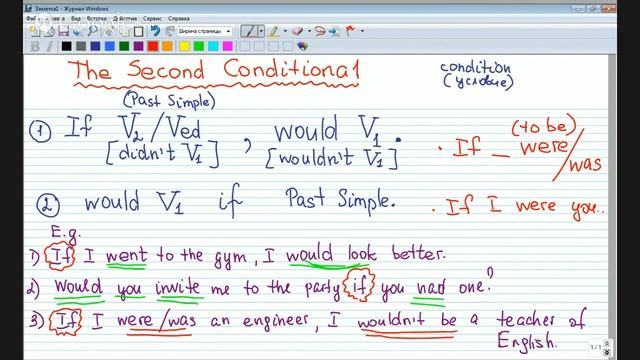 Заметка1 - Журнал Windows
Действия Сервис Справка
Ширина страницы
The Second Conditional
condition
(условие)
(Past Simple)
① If V2/Ved , would V1.
[didn't V1] [wouldn't V1]
(to be)
· If _ were/was
② would V1 if Past Simple.
· If I were you..
E.g.
1) If I went to the gym, I would look better.
2) Would you invite me to the party if you had one?
3) If I were/was an engineer, I wouldn't be a teacher of
English.
1/1